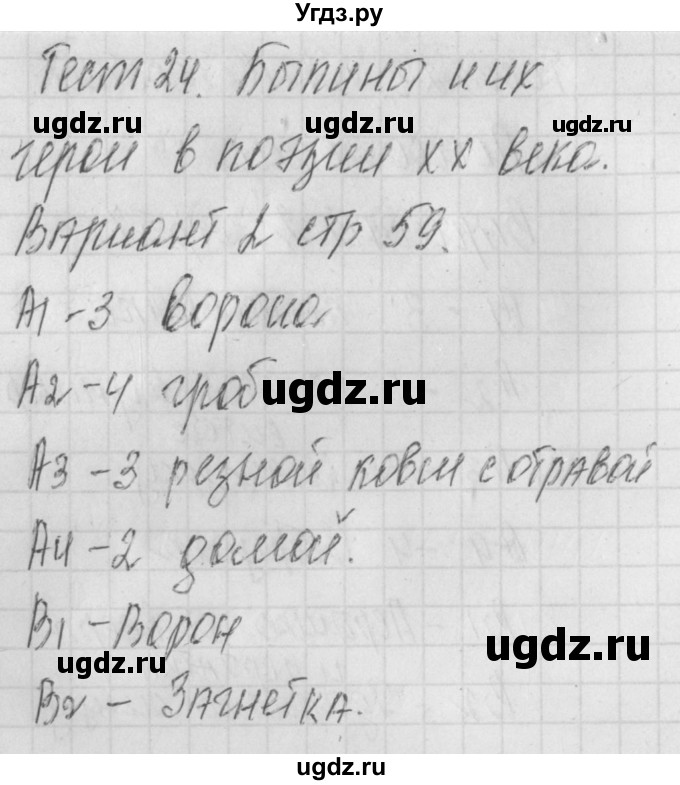 Угдз.ру
Тест 24. Былины и их
ugdz.ru ugdz.ru ugdz.ru
герои в поэзии XX века.
Вариант 2 стр 59.
А1 - 3 ворона
А2 - 4 гроб
ugdz.ru
А3 - 3 резной ковш с отравой
А4 - 2 домой.
В1 - Ворон
ugdz.ru
ugdz.ru
В2 - Загнетка.
ugdz.ru